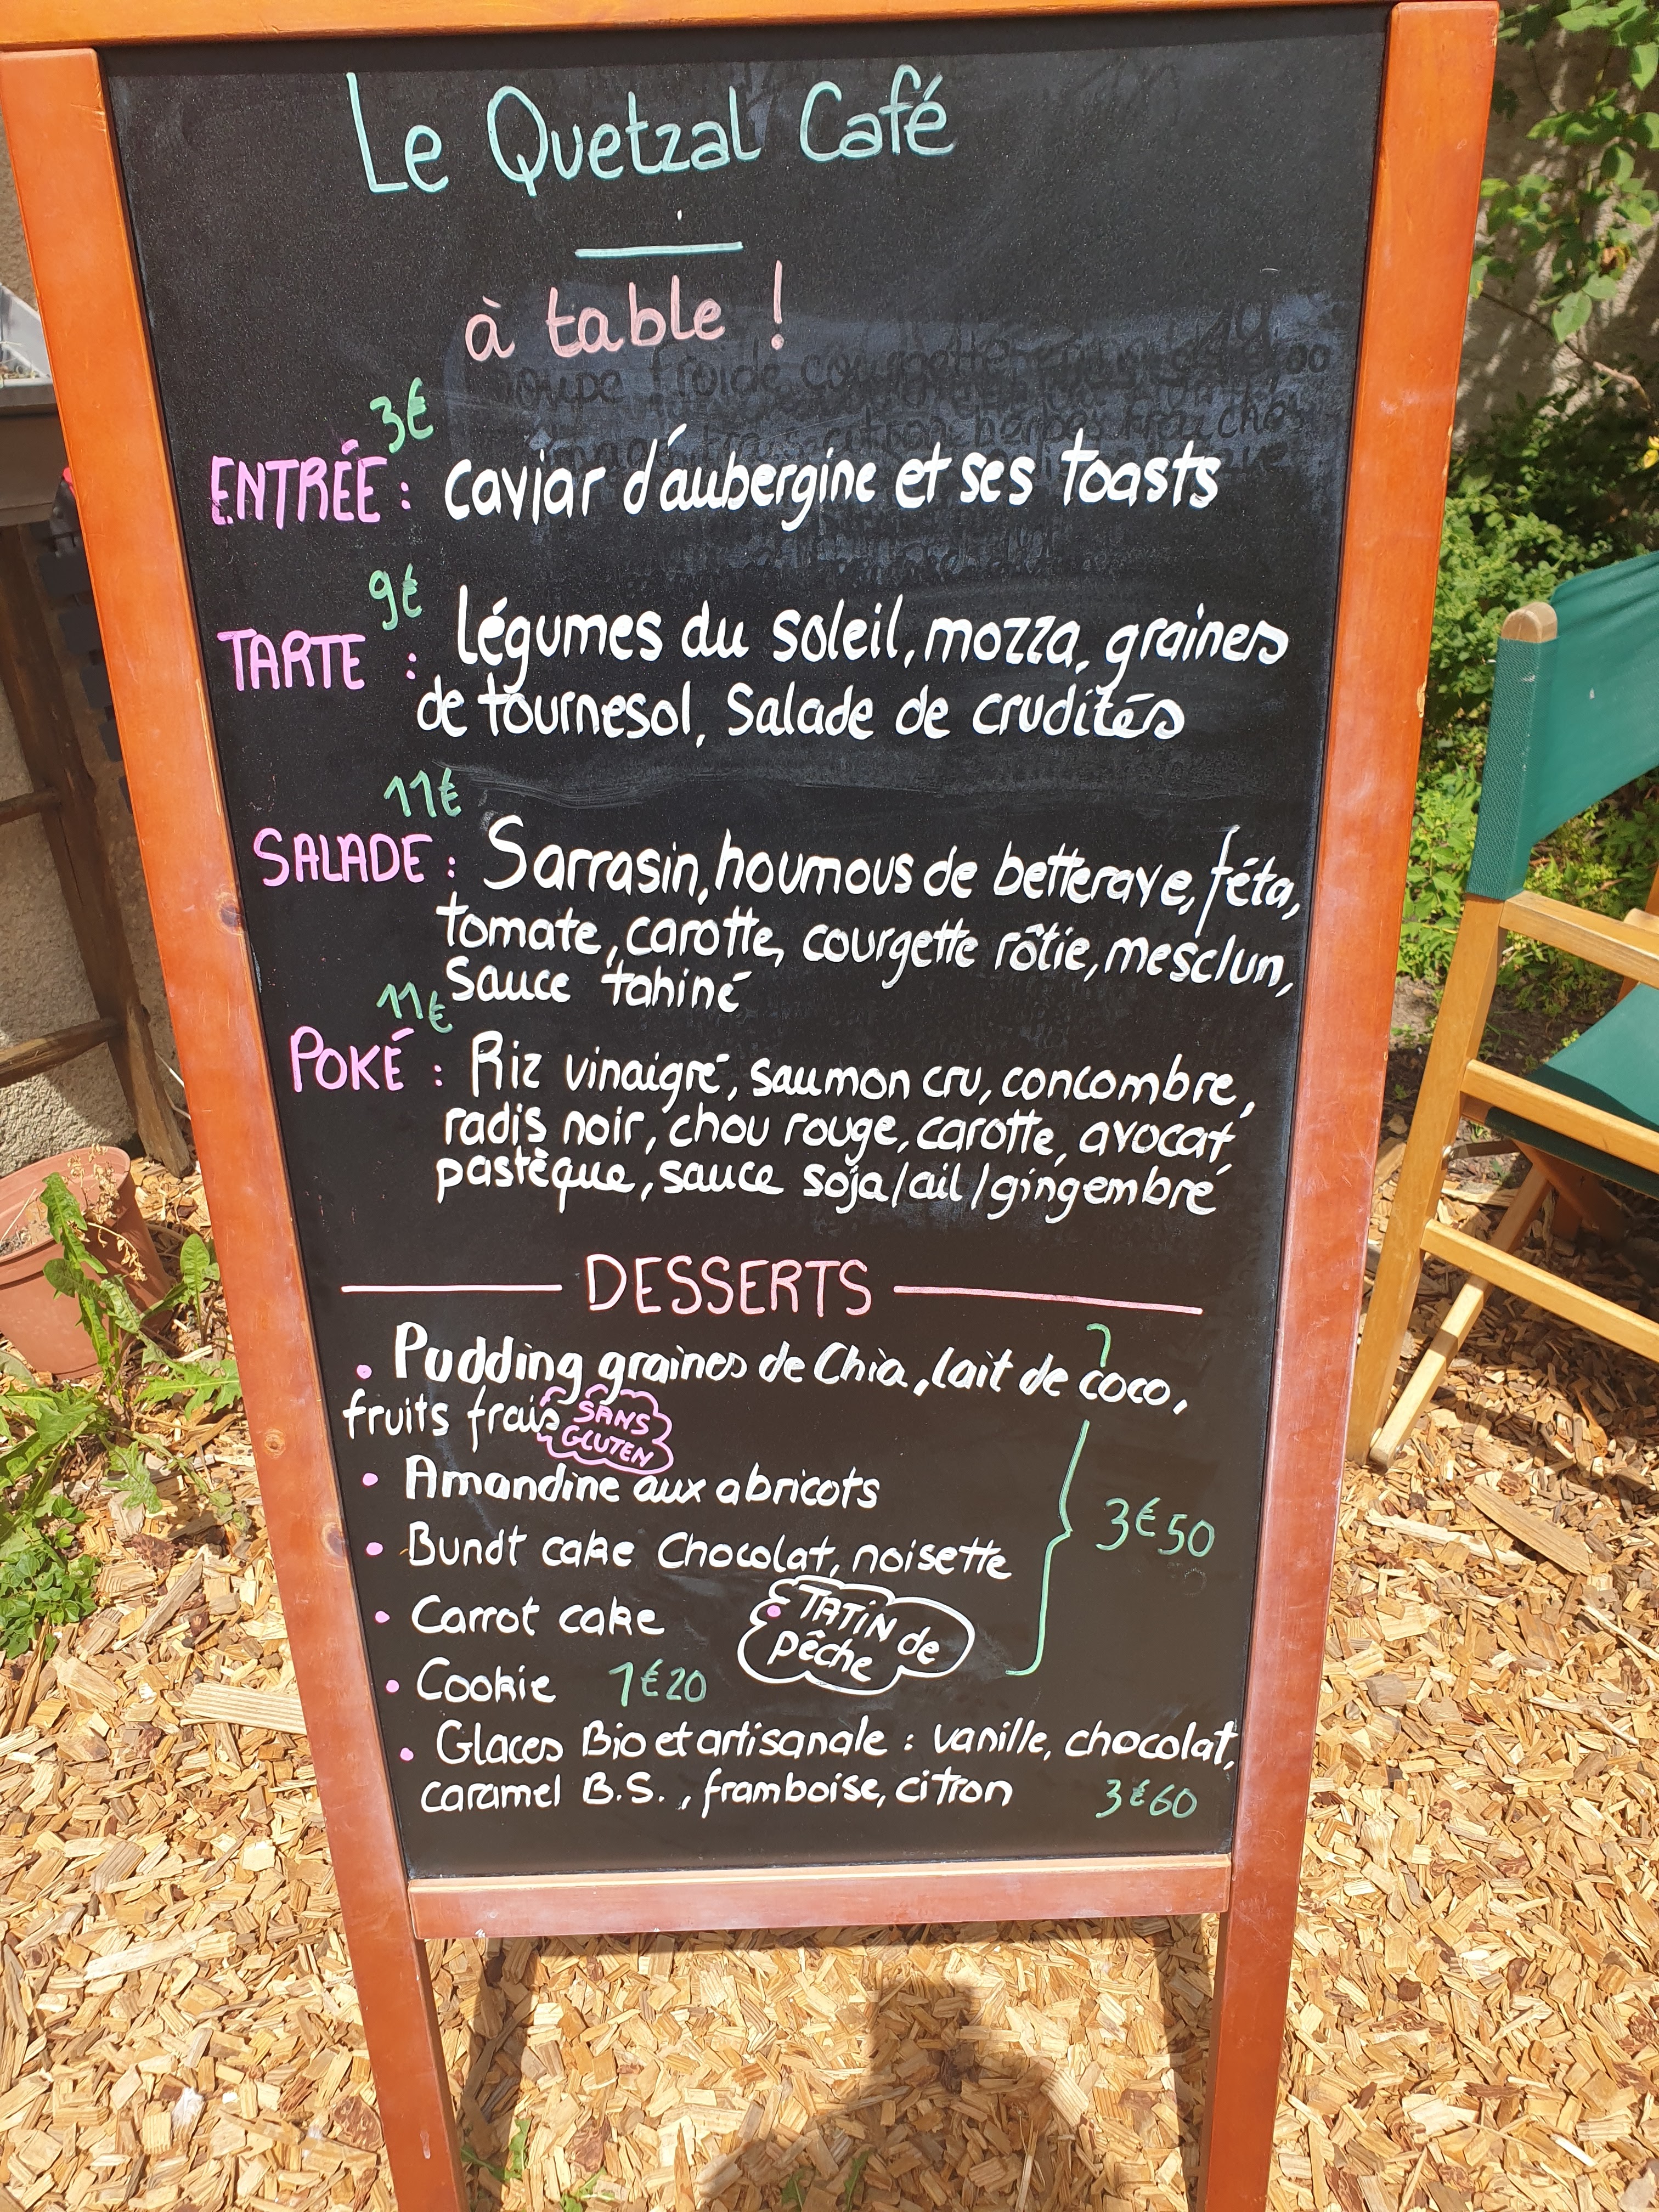 Le Quetzal Café
à table !
3€
ENTRÉE : caviar d'aubergine et ses toasts
9€
TARTE : légumes du soleil, mozza, graines
de tournesol, Salade de crudités
11€
SALADE : Sarrasin, houmous de betterave, féta,
tomate, carotte, courgette rôtie, mesclun,
sauce tahiné
11€
POKÉ : Riz vinaigré, saumon cru, concombre,
radis noir, chou rouge, carotte, avocat,
pastèque, sauce soja/ail/gingembre
DESSERTS
• Pudding graines de Chia, lait de coco,
fruits frais SANS
GLUTEN
• Amandine aux abricots
• Bundt cake Chocolat, noisette
3€50
• Carrot cake
• TATIN de
pêche
• Cookie 1€20
• Glaces Bio et artisanale : vanille, chocolat,
caramel B.S., framboise, citron 3€60